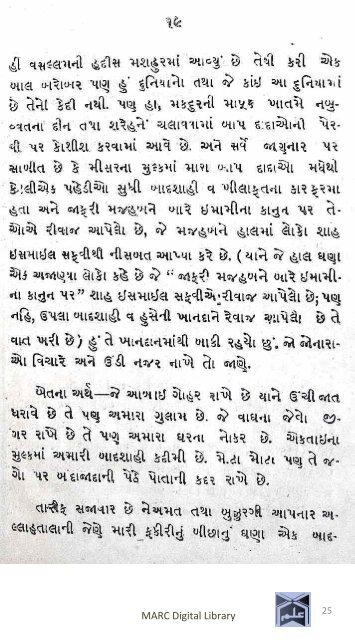 ૧૯
હી વસલ્લમની હદીસ મશહુરમાં આવ્યું છે તેવી કરી એક
બાલ બરોબર પણ હું દુનિયાનો તથા જે કાંઇ આ દુનિયામાં
છે તેનો કેદી નથી. પણ હા, મકદુરની માફક ખાતમે નબુ-
વ્વતના દીન તથા શરેહને ચલાવવામાં બાપ દાદાઓની પેર-
વી પર કોશીશ કરવામાં આવે છે. અને સર્વે જાણનાર પર
સાબીત છે કે મીસરના મુલ્કમાં મારા બાપ દાદાઓ મધેથી
કેટલીએક પહેડીઓ સુધી બાદશાહી વ ખીલાફતના કારફરમા
હતા અને જાફરી મજહબને બારે ઇમામીના કાનુન પર તે-
ઓએ રીવાજ આપેલો છે, જે મજહબને હાલમાં લોકો શાહ
ઇસમાઈલ સફવીથી નીસબત આપ્યા કરે છે. (યાને જે હાલ ઘણા
એક અજાણ્યા લોકો કહે છે જે “ જાફરી મજહબને બારે ઇમામી-
ના કાનુન પર” શાહ ઇસમાઈલ સફવીએ રીવાજ આપેલો છે; પણ
નહિ, ઉપલા બાદશાહી વ હુસેની ખાનદાને રેવાજ આપેલો છે તે
વાત ખરી છે) હું તે ખાનદાનમાંથી બાકી રહ્યો છું. જો જોનારા-
ઓ વિચારે અને ઉંડી નજર નાખે તો જાણે.
બેતના અર્થ—જે આબાઇ ગોહર રાખે છે યાને ઉંચી જાત
ધરાવે છે તે પણ અમારા ગુલામ છે. જે વાઘના જેવો જી-
ગર રાખે છે તે પણ અમારા ઘરના નોકર છે. એકતાઇના
મુલ્કમાં અમારી બાદશાહી કદીમી છે. મોટા મોટા પણ તે જ-
ગો પર બંદાજાદાની પેઠે પોતાની કદર રાખે છે.
તારીફ સજાવાર છે નેઅમત તથા બુજુરગી આપનાર અ-
લ્લાહતાલાની જેણે મારી ફકીરીનું બીછાનું ઘણા એક બાદ-
MARC Digital Library
علم
25